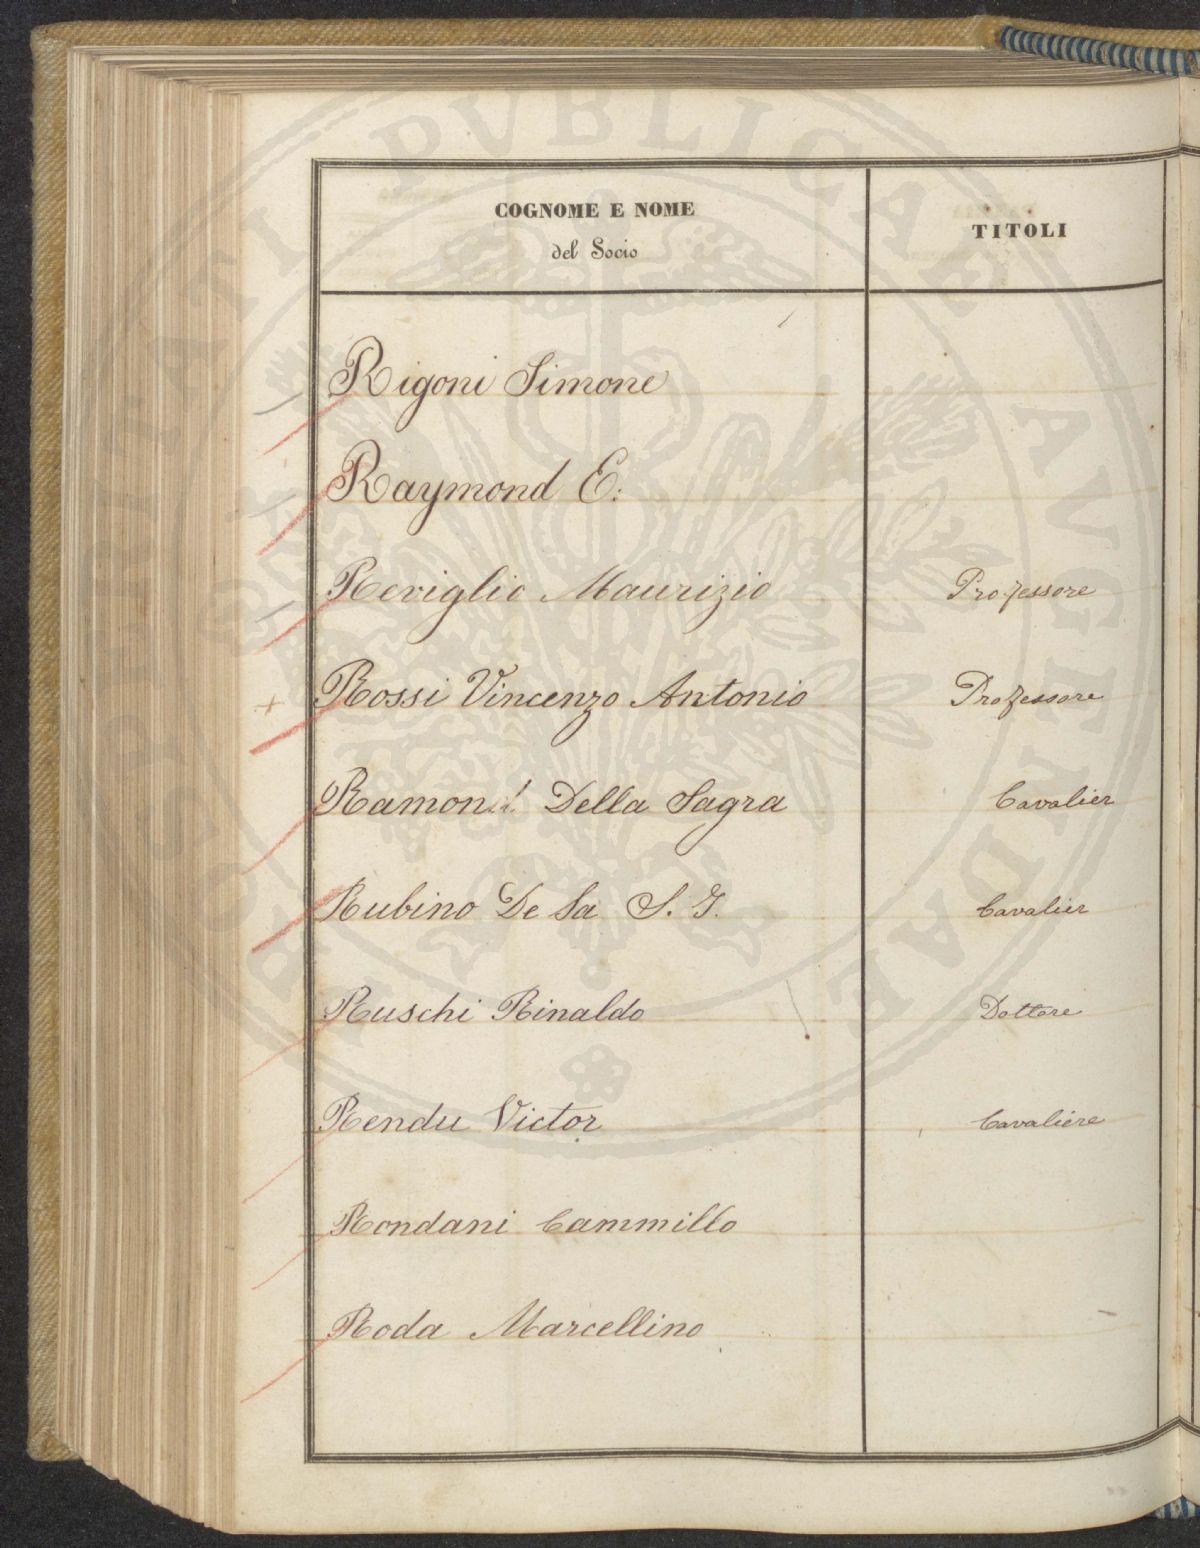 COGNOME E NOME
del Socio
TITOLI
Rigoni Simone
Raymond E.
Reviglio Maurizio Professore
Rossi Vincenzo Antonio Professore
Ramond Della Sagra Cavalier
Rubino De Sa S. J. Cavalier
Ruschi Rinaldo Dottore
Rendu Victor Cavaliere
Rondani Cammillo
Roda Marcellino